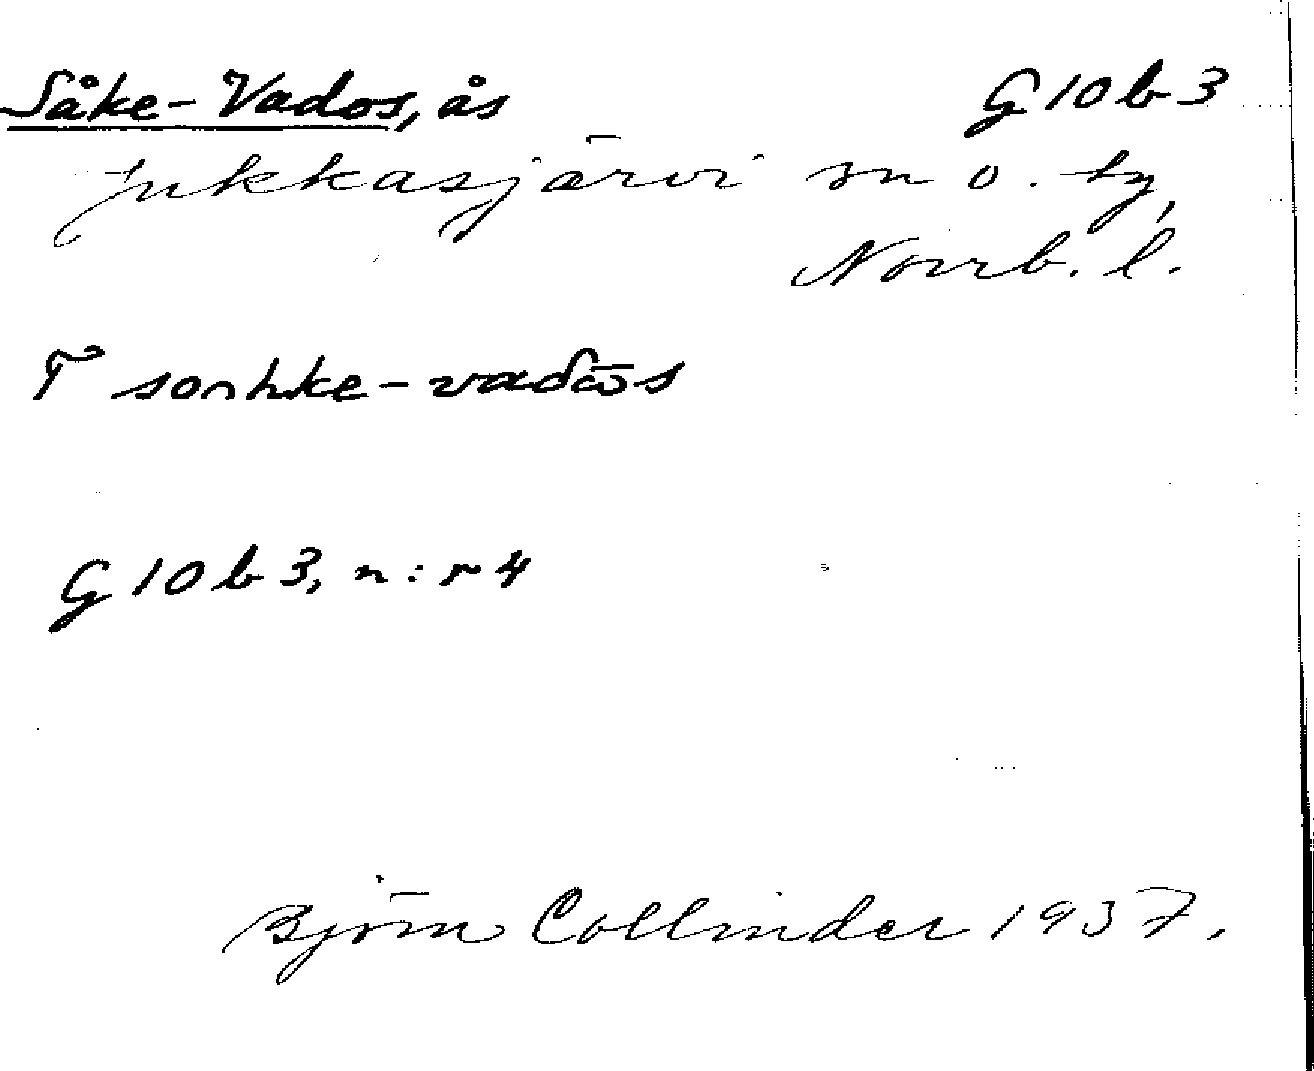 Såke-Vados, ås G10b3
Jukkasjärvi sn o. tg,
Norrb. l.
T sonhke-vadōs
G10b3, n:r 4
Björn Collinder 1937.